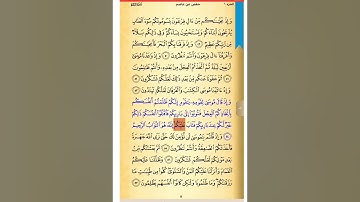 الجزء ١ حفص عن عاصم البقرة
وَإِذْ نَجَّيْنَٰكُم مِّنْ ءَالِ فِرْعَوْنَ يَسُومُونَكُمْ سُوٓءَ ٱلْعَذَابِ
يُذَبِّحُونَ أَبْنَآءَكُمْ وَيَسْتَحْيُونَ نِسَآءَكُمْ وَفِى ذَٰلِكُم بَلَآءٌ
مِّن رَّبِّكُمْ عَظِيمٌ ٤٩ وَإِذْ فَرَقْنَا بِكُمُ ٱلْبَحْرَ فَأَنجَيْنَٰكُمْ
وَأَغْرَقْنَآ ءَالَ فِرْعَوْنَ وَأَنتُمْ تَنظُرُونَ ٥٠ وَإِذْ وَٰعَدْنَا مُوسَىٰٓ
أَرْبَعِينَ لَيْلَةً ثُمَّ ٱتَّخَذْتُمُ ٱلْعِجْلَ مِنۢ بَعْدِهِۦ وَأَنتُمْ ظَٰلِمُونَ
٥١ ثُمَّ عَفَوْنَا عَنكُم مِّنۢ بَعْدِ ذَٰلِكَ لَعَلَّكُمْ تَشْكُرُونَ ٥٢
وَإِذْ ءَاتَيْنَا مُوسَى ٱلْكِتَٰبَ وَٱلْفُرْقَانَ لَعَلَّكُمْ تَهْتَدُونَ ٥٣
وَإِذْ قَالَ مُوسَىٰ لِقَوْمِهِۦ يَٰقَوْمِ إِنَّكُمْ ظَلَمْتُمْ أَنفُسَكُم
بِٱتِّخَاذِكُمُ ٱلْعِجْلَ فَتُوبُوٓا۟ إِلَىٰ بَارِئِكُمْ فَٱقْتُلُوٓا۟ أَنفُسَكُمْ ذَٰلِكُمْ
خَيْرٌ لَّكُمْ عِندَ بَارِئِكُمْ فَتَابَ عَلَيْكُمْ إِنَّهُۥ هُوَ ٱلتَّوَّابُ ٱلرَّحِيمُ
٥٤ وَإِذْ قُلْتُمْ يَٰمُوسَىٰ لَن نُّؤْمِنَ لَكَ حَتَّىٰ نَرَى ٱللَّهَ جَهْرَةً
فَأَخَذَتْكُمُ ٱلصَّٰعِقَةُ وَأَنتُمْ تَنظُرُونَ ٥٥ ثُمَّ بَعَثْنَٰكُم مِّنۢ
بَعْدِ مَوْتِكُمْ لَعَلَّكُمْ تَشْكُرُونَ ٥٦ وَظَلَّلْنَا عَلَيْكُمُ
ٱلْغَمَامَ وَأَنزَلْنَا عَلَيْكُمُ ٱلْمَنَّ وَٱلسَّلْوَىٰ كُلُوا۟ مِن طَيِّبَٰتِ مَا
رَزَقْنَٰكُمْ وَمَا ظَلَمُونَا وَلَٰكِن كَانُوٓا۟ أَنفُسَهُمْ يَظْلِمُونَ ٥٧